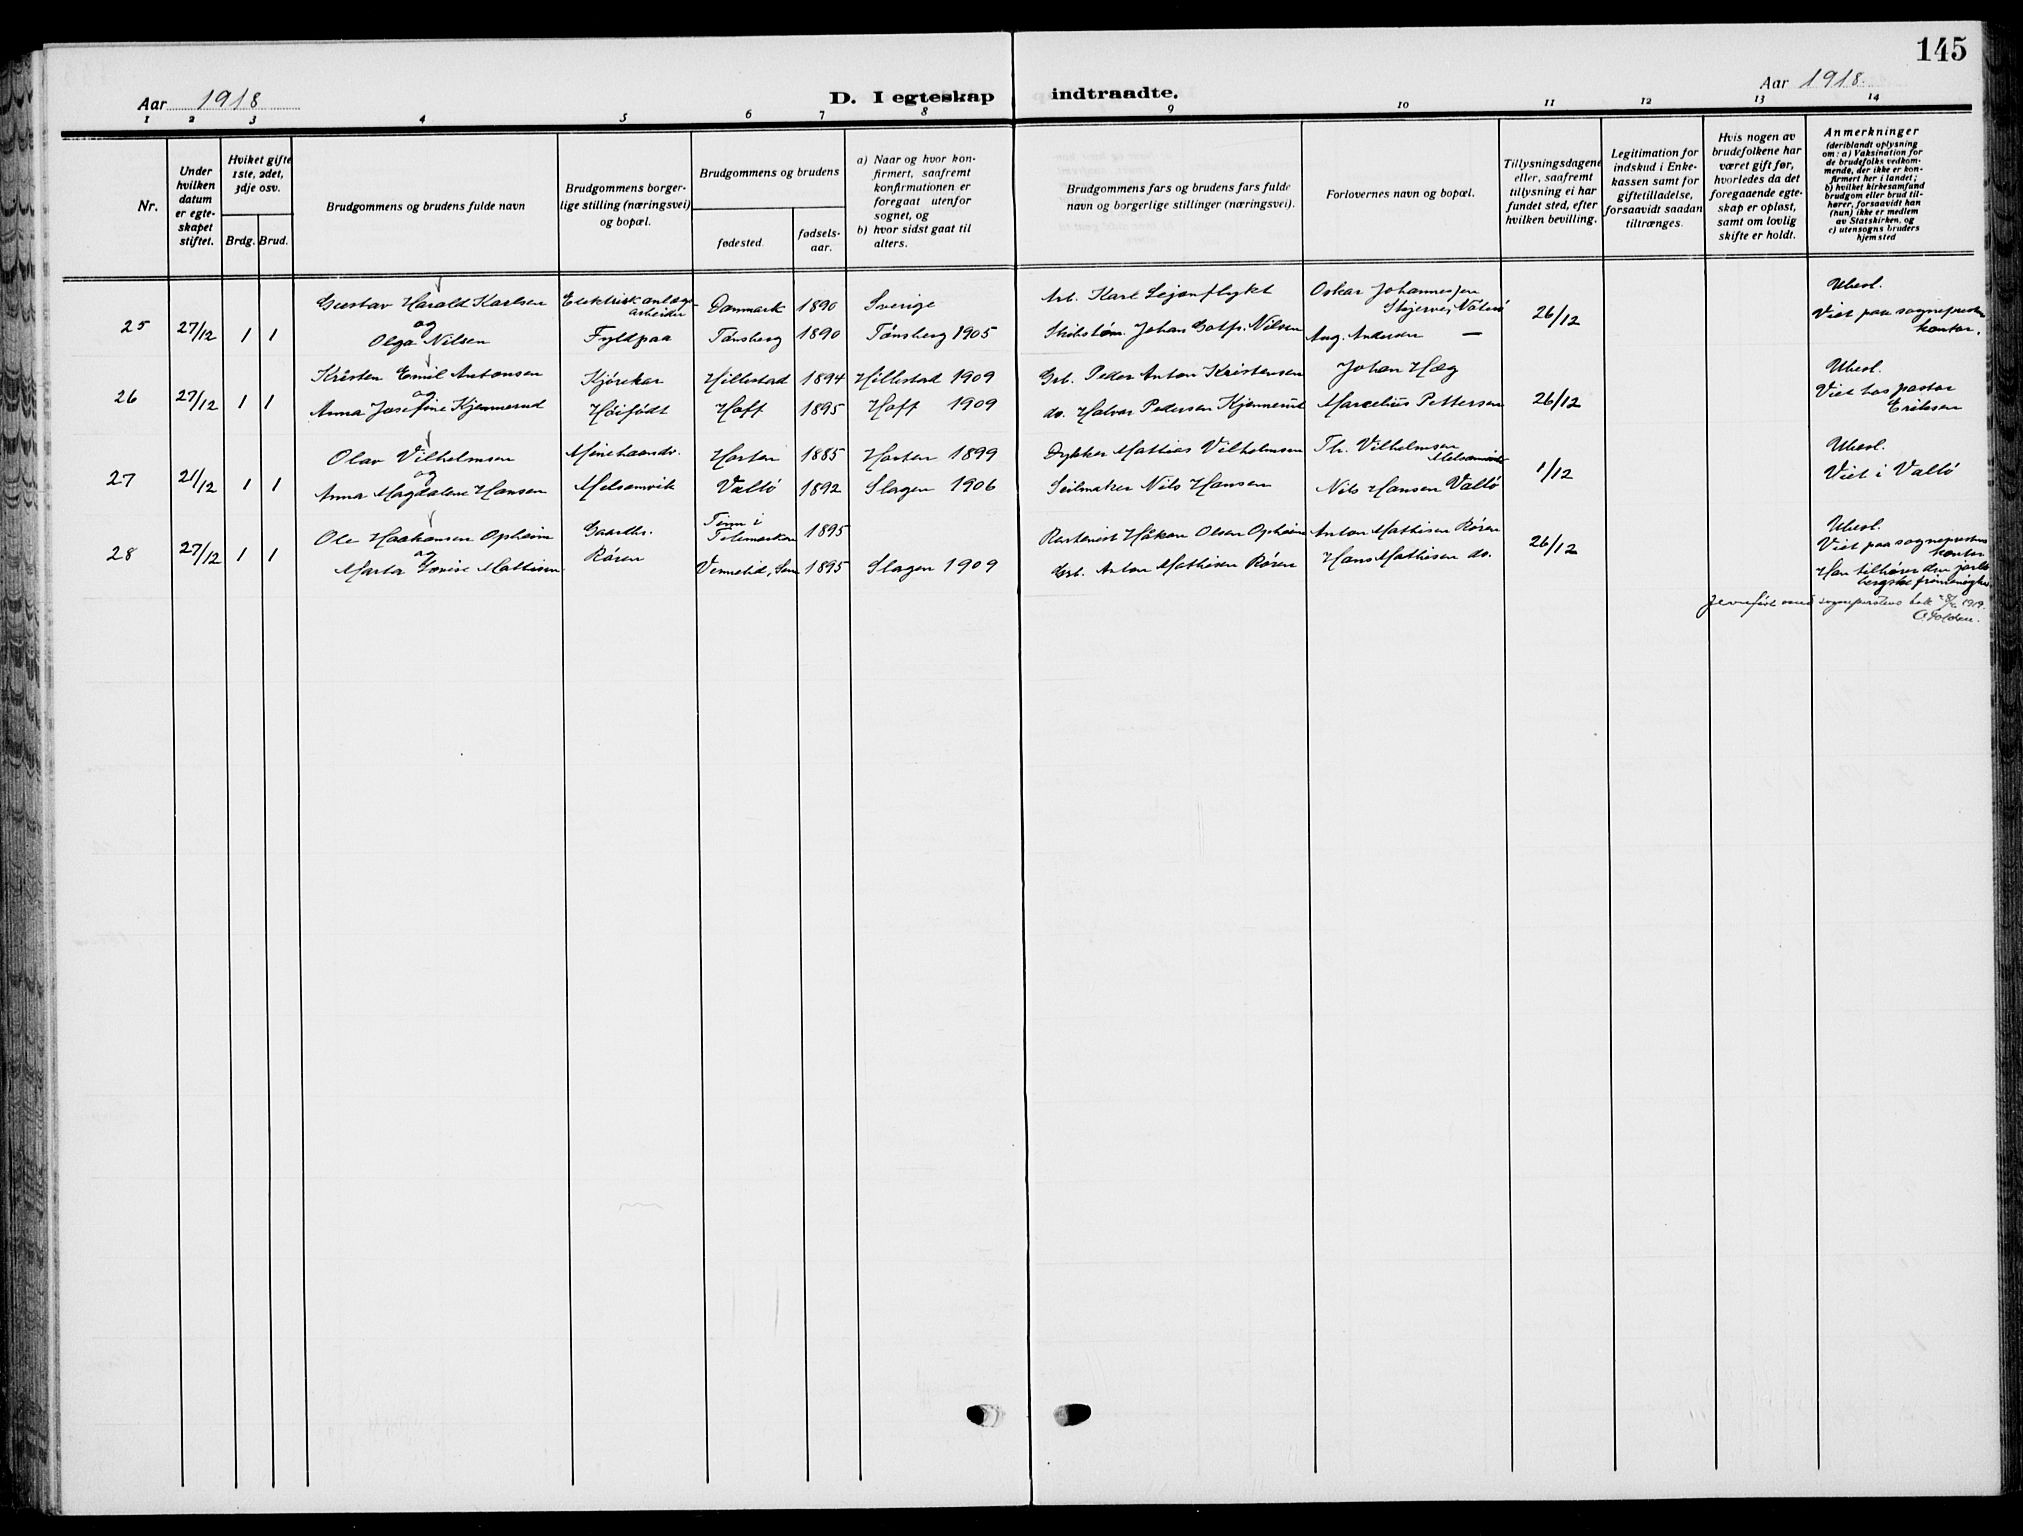 145
Aar 1918
D. I egteskap indtraadte.
Aar 1918.
1 2 3 4 5 6 7 8 9 10 11 12 13 14
Nr.
Under hvilken datum er egteskapet stiftet.
Hvilket gifte 1ste, 2det, 3dje osv.
Brdg. Brud.
Brudgommens og brudens fulde navn
Brudgommens borgerlige stilling (næringsvei) og bopæl.
Brudgommens og brudens
fødested.
fødselsaar.
a) Naar og hvor konfirmert, saafremt konfirmationen er foregaat utenfor sognet, og
b) hvor sidst gaat til alters.
Brudgommens fars og brudens fars fulde navn og borgerlige stillinger (næringsvei).
Forlovernes navn og bopæl.
Tillysningsdagene eller, saafremt tillysning ei har fundet sted, efter hvilken bevilling.
Legitimation for indskud i Enkekassen samt for giftetilladelse, forsaavidt saadan tiltrænges.
Hvis nogen av brudefolkene har været gift før, hvorledes da det foregaaende egteskap er opløst, samt om lovlig skifte er holdt.
Anmerkninger
(deriblandt oplysning om: a) Vaksination for de brudefolks vedkommende, der ikke er konfirmert her i landet; b) hvilket kirkesamfund brudgom eller brud tilhører, forsaavidt han (hun) ikke er medlem av Statskirken, og c) utensogns bruders hjemsted
25 27/12 1 1
Gustav Harald Karlsen Elektrisk anlægsarbeider Danmark 1890 Sverige Arb. Karl Lejonflykt Oskar Johannessen Skjerve, Nøterö 26/12 Ubesl.
og
Olga Nilsen Fyldpaa Tønsberg 1890 Tønsberg 1905 Johan Gotfr. Nilsen Aug. Andersen — Viet paa sogneprestens kontor.
26 27/12 1 1
Kristen Emil Antonsen Kjørekar Hillestad 1894 Hillestad 1909 Grb. Peder Anton Kristensen Johan Hæg 26/12 Ubesl.
og
Anna Josefine Kjennerud Høifødt Hoff 1895 Hoff 1909 do. Halvor Pedersen Kjennerud Marcelius Pettersen Viet hos pastor Eriksen
27 21/12 1 1
Olav Vilhelmsen Minehaandv. Horten 1885 Horten 1899 Dykker Mathias Vilhelmsen Th. Vilhelmsen Melsomvik 1/12 Ubesl.
og
Anna Magdalene Hansen Melsomvik Vallö 1892 Slagen 1906 Seilmaker Nils Hansen Nils Hansen Vallö Viet i Vallö
28 27/12 1 1
Ole Haakonsen Opheim Gaardbr. Tinn i Telemarken 1895 Håkon Olsen Opheim Anton Mathisen Røren 26/12 Ubesl.
og
Marta Lovise Mathisen Røren Vennelid, Sem 1895 Slagen 1909 Grb. Anton Mathisen Røren Hans Mathisen do. Viet paa sogneprestens kontor
Han tilhører den jarlsbergske frimenighet
Jevnført med sogneprestens bok 1919.